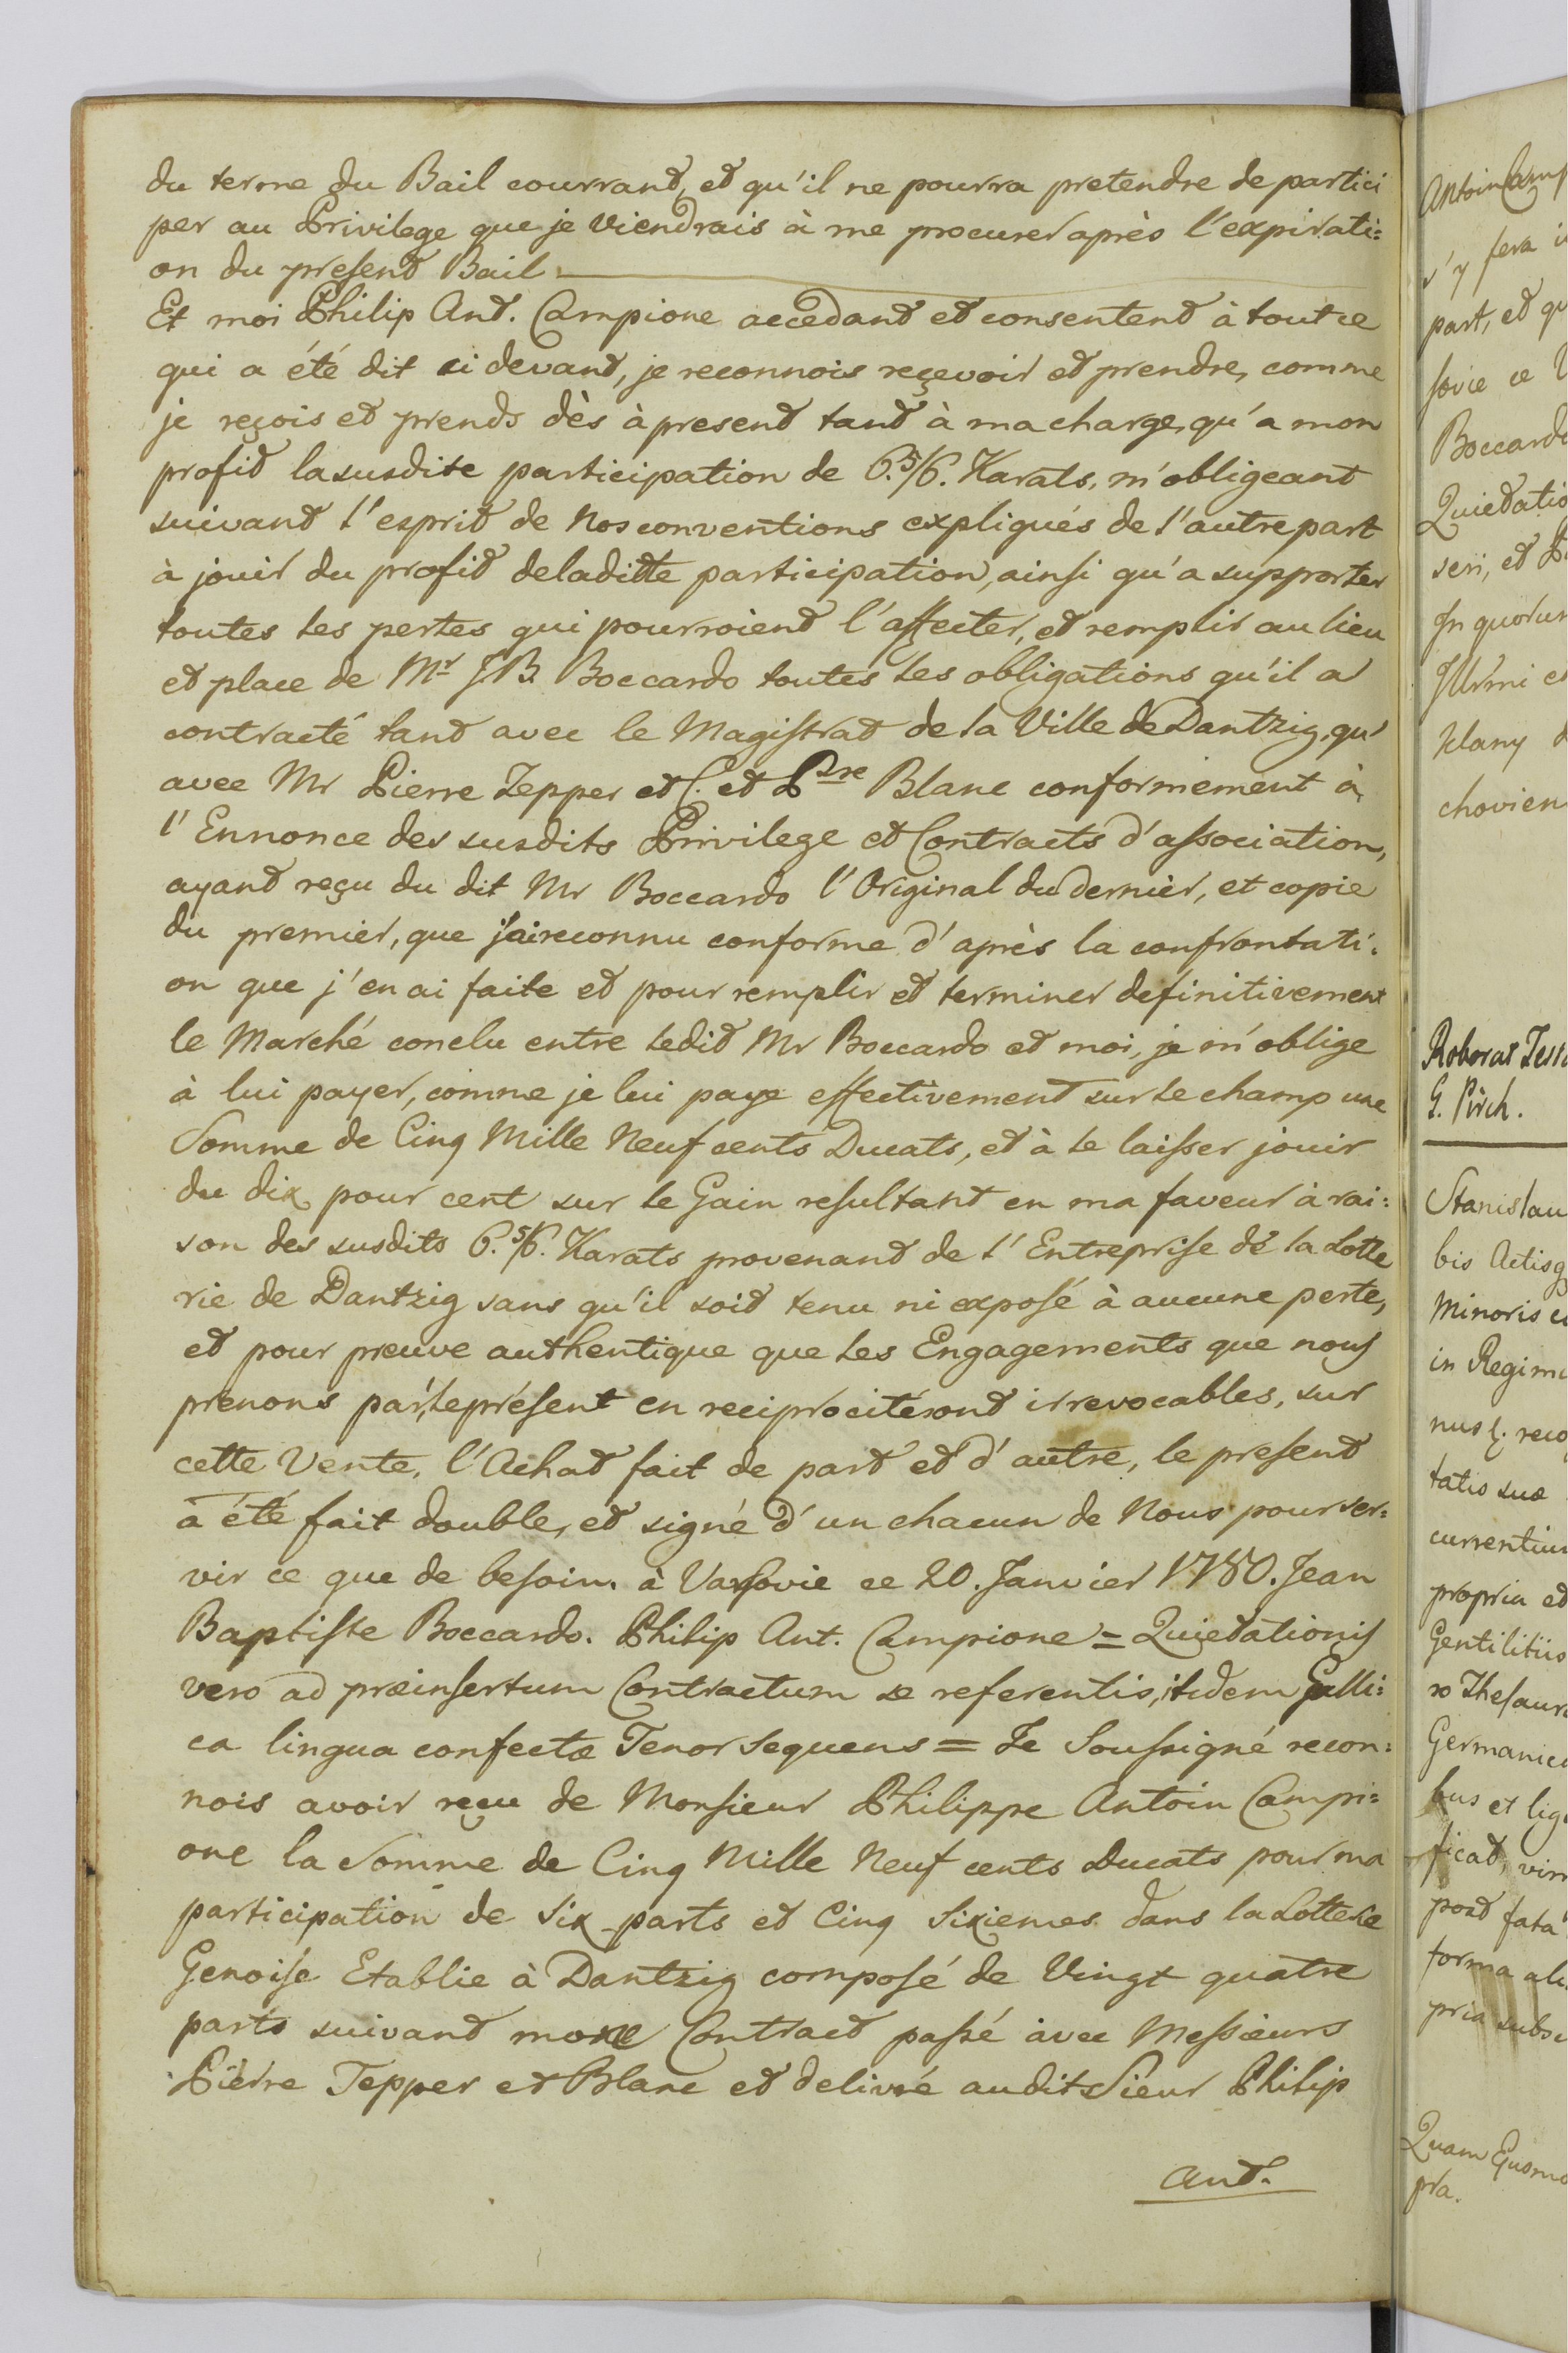 du terme du Bail courrant, et qu'il ne pourra pretendre de partici
per au Privilege que je viendrais à me procurer après l'expirati=
on du present Bail.
Et moi Philip Ant. Campione accedant et consentent à tout ce
qui a été dit ci devant, je reconnois reçevoir et prendre, comme
je reçois et prends dès à present tant à ma charge, qu'a mon
profit la susdite participation de 6.5/6. Karats, m'obligeant
suivant l'esprit de Nos conventions expliqués de l'autre part
à jouir du profit de laditte participation, ainsi qu'a supporter
toutes les pertes qui pourroient l'affecter, et remplir au lieu
et place de Mr J.B. Boccardo toutes les obligations qu'il a
contracté tant avec le Magistrat de la Ville de Dantzig, qu'
avec Mr Pierre Tepper et C. et Pre Blanc conformement à
l'Ennonce des susdits Privilege et Contracts d'association,
ayant reçu du dit Mr Boccardo l'Original du dernier, et copie
du premier, que j'ai reconnu conforme d'après la confrontati=
on que j'en ai faite et pour remplir et terminer definitivement
le Marché conclu entre ledit Mr Boccardo et moi, je m'oblige
à lui payer, comme je lui paye effectivement sur le champ une
Somme de Cinq Mille Neuf cents Ducats, et à le laisser jouir
du dix pour cent sur le Gain resultant en ma faveur à rai=
son des susdits 6.5/6. Karats provenant de l'Entreprise de la Lotte
rie de Dantzig sans qu'il soit tenu ni exposé à aucune perte,
et pour preuve authentique que les Engagements que nous
prenons par le présent en reciprocité sont irrevocables, sur
cette Vente, l'Achat fait de part et d'autre, le present
a été fait double, et signé d'un chacun de Nous pour ser=
vir ce que de besoin. à Varsovie ce 20. Janvier 1780. Jean
Baptiste Boccardo. Philip Ant. Campione = Quietationis
vero ad præinsertum Contractum se referentis, itidem Galli=
ca lingua confectæ Tenor sequens = Je Soussigné recon=
nois avoir reçu de Monsieur Philippe Antoin Campi=
one la Somme de Cinq Mille Neuf cents Ducats pour ma
participation de Six parts et Cinq Sixiemes dans la Lotterie
Genoise Etablie à Dantzig composé de Vingt quatre
parts suivant mon Contract passé avec Messieurs
Pierre Tepper et Blanc et delivré audit Sieur Philip
Ant.
Antoin Camp
s'y fera
part, et qu
sovie ce
Boccardo
Quietatio
seri, et
In quorum
Illrmi et
Klany
chovien
Roborat
G. Pirch.
Stanislau
bis Actisq
Minoris
in Regim
nus
tatis suæ
currentium
propria et
Gentilitiis
ro Thesaur
Germanica
bus et lig
ficat,
post fata
forma
pria subsc
Quam
pra.